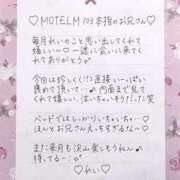 ♡MOTELM 103 本指のお兄さん♡
毎月れいのこと思い出してくれて
嬉しい〜♡ 一緒に会いに来てく
れてありがとう♪
今回は珍しく!!直接い〜っぱい
褒めて頂いて…♪ 内面まで見て
くれてて嬉しい。泣いちゃいそうだった!笑
ベッドではしっかりいちゃいちゃ…♡
ほんとお兄さんえっちすぎるな〜♡
また来月も沢山楽しもうねん♪
待ってるー!♪
♡れい♡